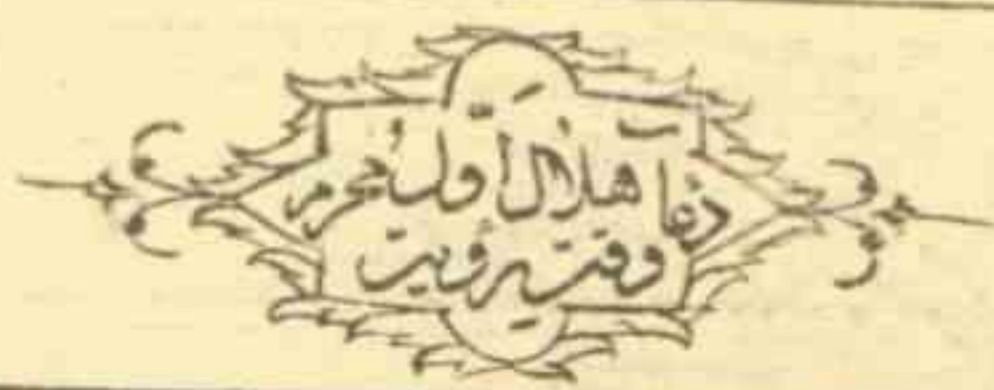 دُعَآ هلال اَوّلِ محرم
وقت رؤيت